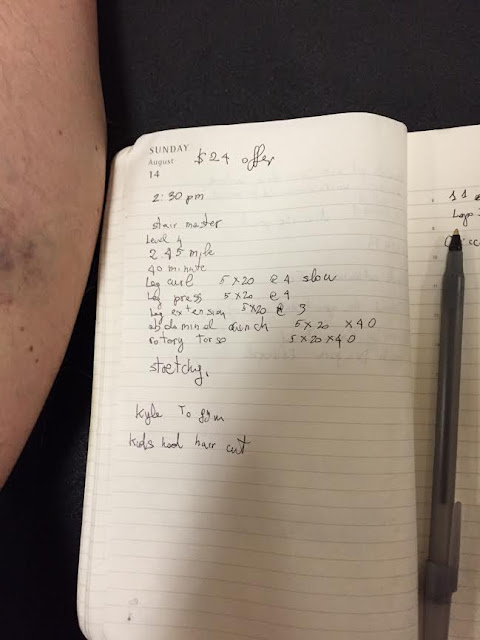 SUNDAY
August
14
$24 offer
2:30 pm
stair master
Level 4
2.45 mile
40 minute
Leg curl 5x20 @ 4 slow
Leg press 5x20 @ 4
Leg extension 5x20 @ 3
abdominel crunch 5x20 x40
rotory torso 5x20x40
stretchy.
Kyle To gym
Kids hood hair cut
11